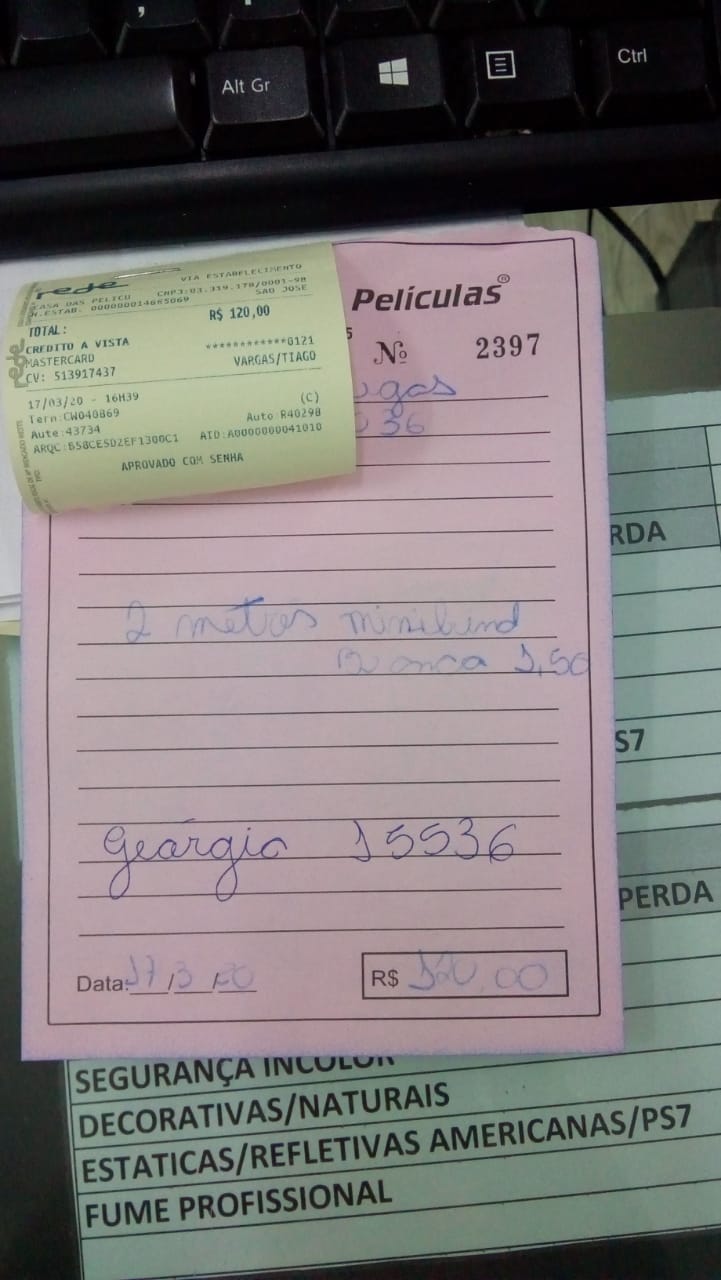 Alt Gr
Ctrl
rede
VIA ESTABELECIMENTO
CASA DAS PELICU CNPJ:03.319.178/0001-98
N.ESTAB. 000000014685069 SAO JOSE
TOTAL: R$ 120,00
CREDITO A VISTA ************0121
MASTERCARD VARGAS/TIAGO
CV: 513917437
17/03/20 - 16H39 (C)
Term:CW040869 Auto:R40298
Aute:43734
ARQC:B58CE5D2EF1300C1 AID:A0000000041010
APROVADO COM SENHA
Películas®
Nº 2397
36
2 metros miniblind
Branca 1,50
Geórgia 15536
Data: 17/3/20 R$ 120,00
RDA
S7
PERDA
SEGURANÇA INCOLOR
DECORATIVAS/NATURAIS
ESTATICAS/REFLETIVAS AMERICANAS/PS7
FUME PROFISSIONAL